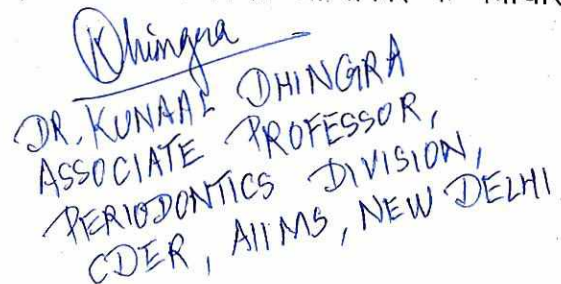 Dhingra
DR. KUNAAL DHINGRA
ASSOCIATE PROFESSOR,
PERIODONTICS DIVISION,
CDER, AIIMS, NEW DELHI